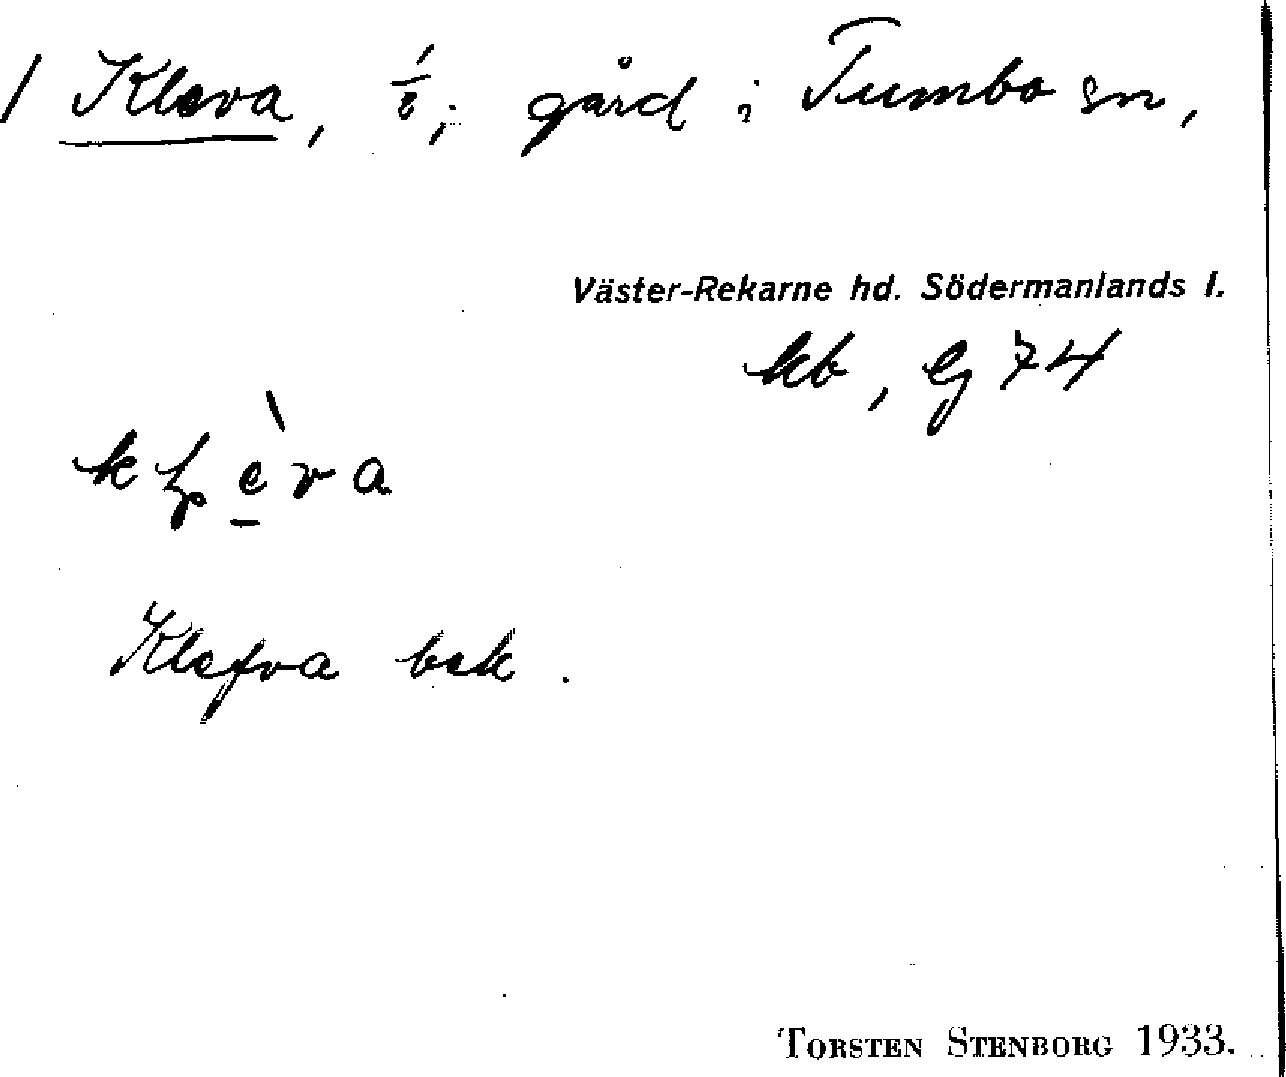 / Kleva, 1/8; gård i Tumbo sn,
Väster-Rekarne hd. Södermanlands l.
kb, Eg 74
Klefva bek.
TORSTEN STENBORG 1933.